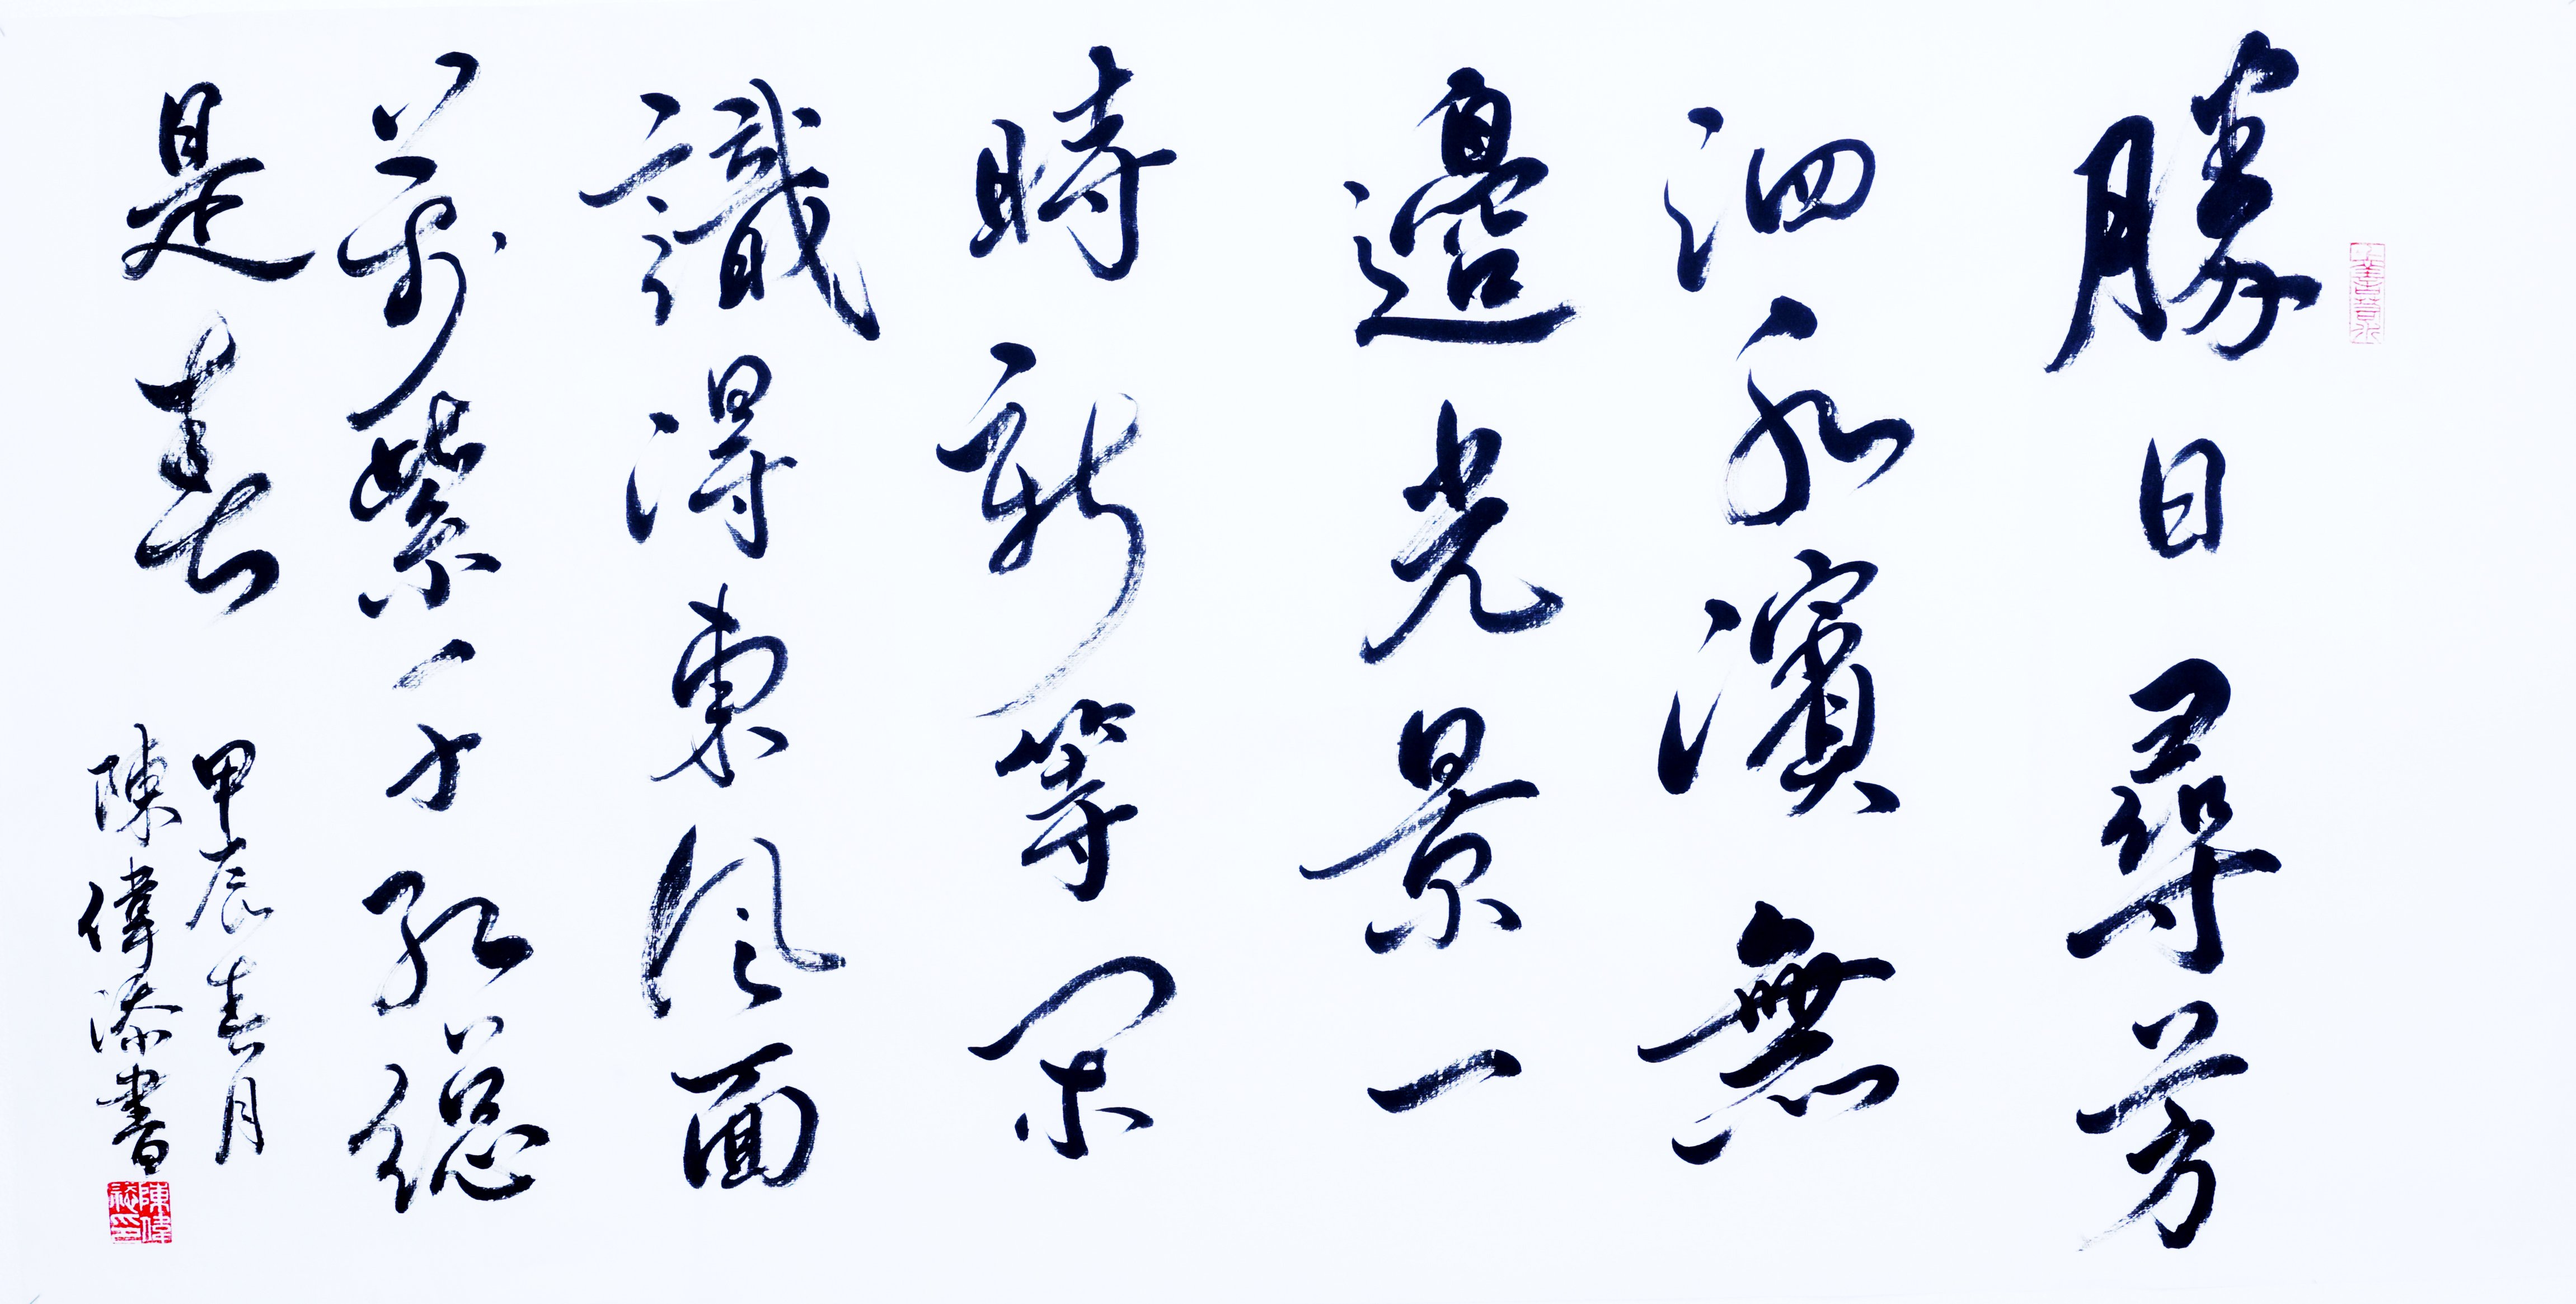 上善若水
勝日尋芳
泗水濱無
邊光景一
時新等閑
識得東風面
萬紫千紅總
是春
甲辰春月
陳偉添書
陳偉添印